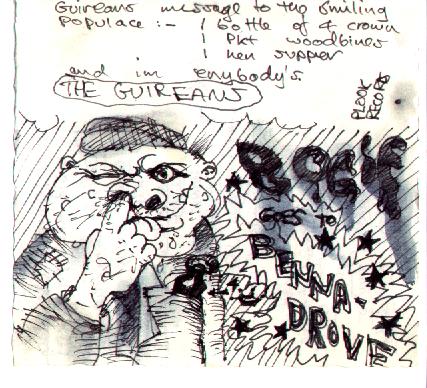 Guireans message to the smiling
Populace :- 1 bottle of 4 crown
1 Pkt woodbines
1 hen supper
and im enybody's
THE GUIREANS
PLOOK
RECORDS
GOES TO
BENNA-
DROVE